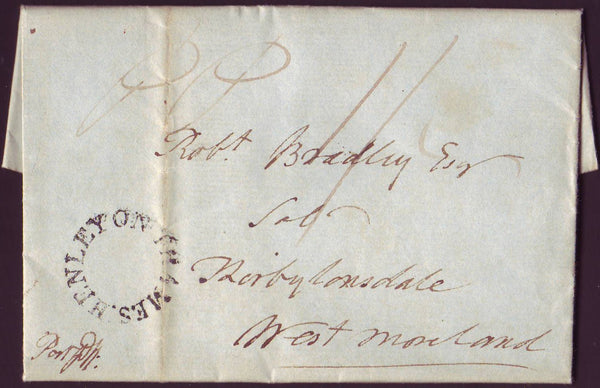 PP
11
Robt. Bradley Esqr
Solr
Kirbylonsdale
West moreland
HENLEY ON THAMES.
Post Pd.